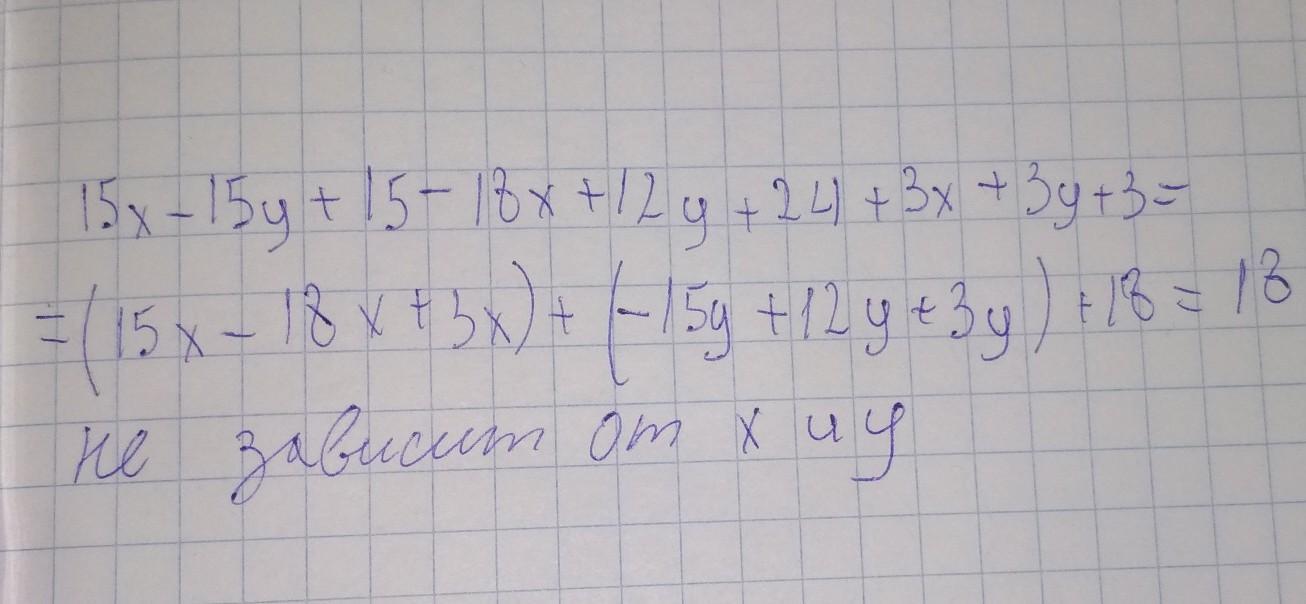 15x - 15y + 15 - 18x + 12y + 24 + 3x + 3y + 3 =
= (15x - 18x + 3x) + (-15y + 12y + 3y) + 18 = 18
не зависит от x и y